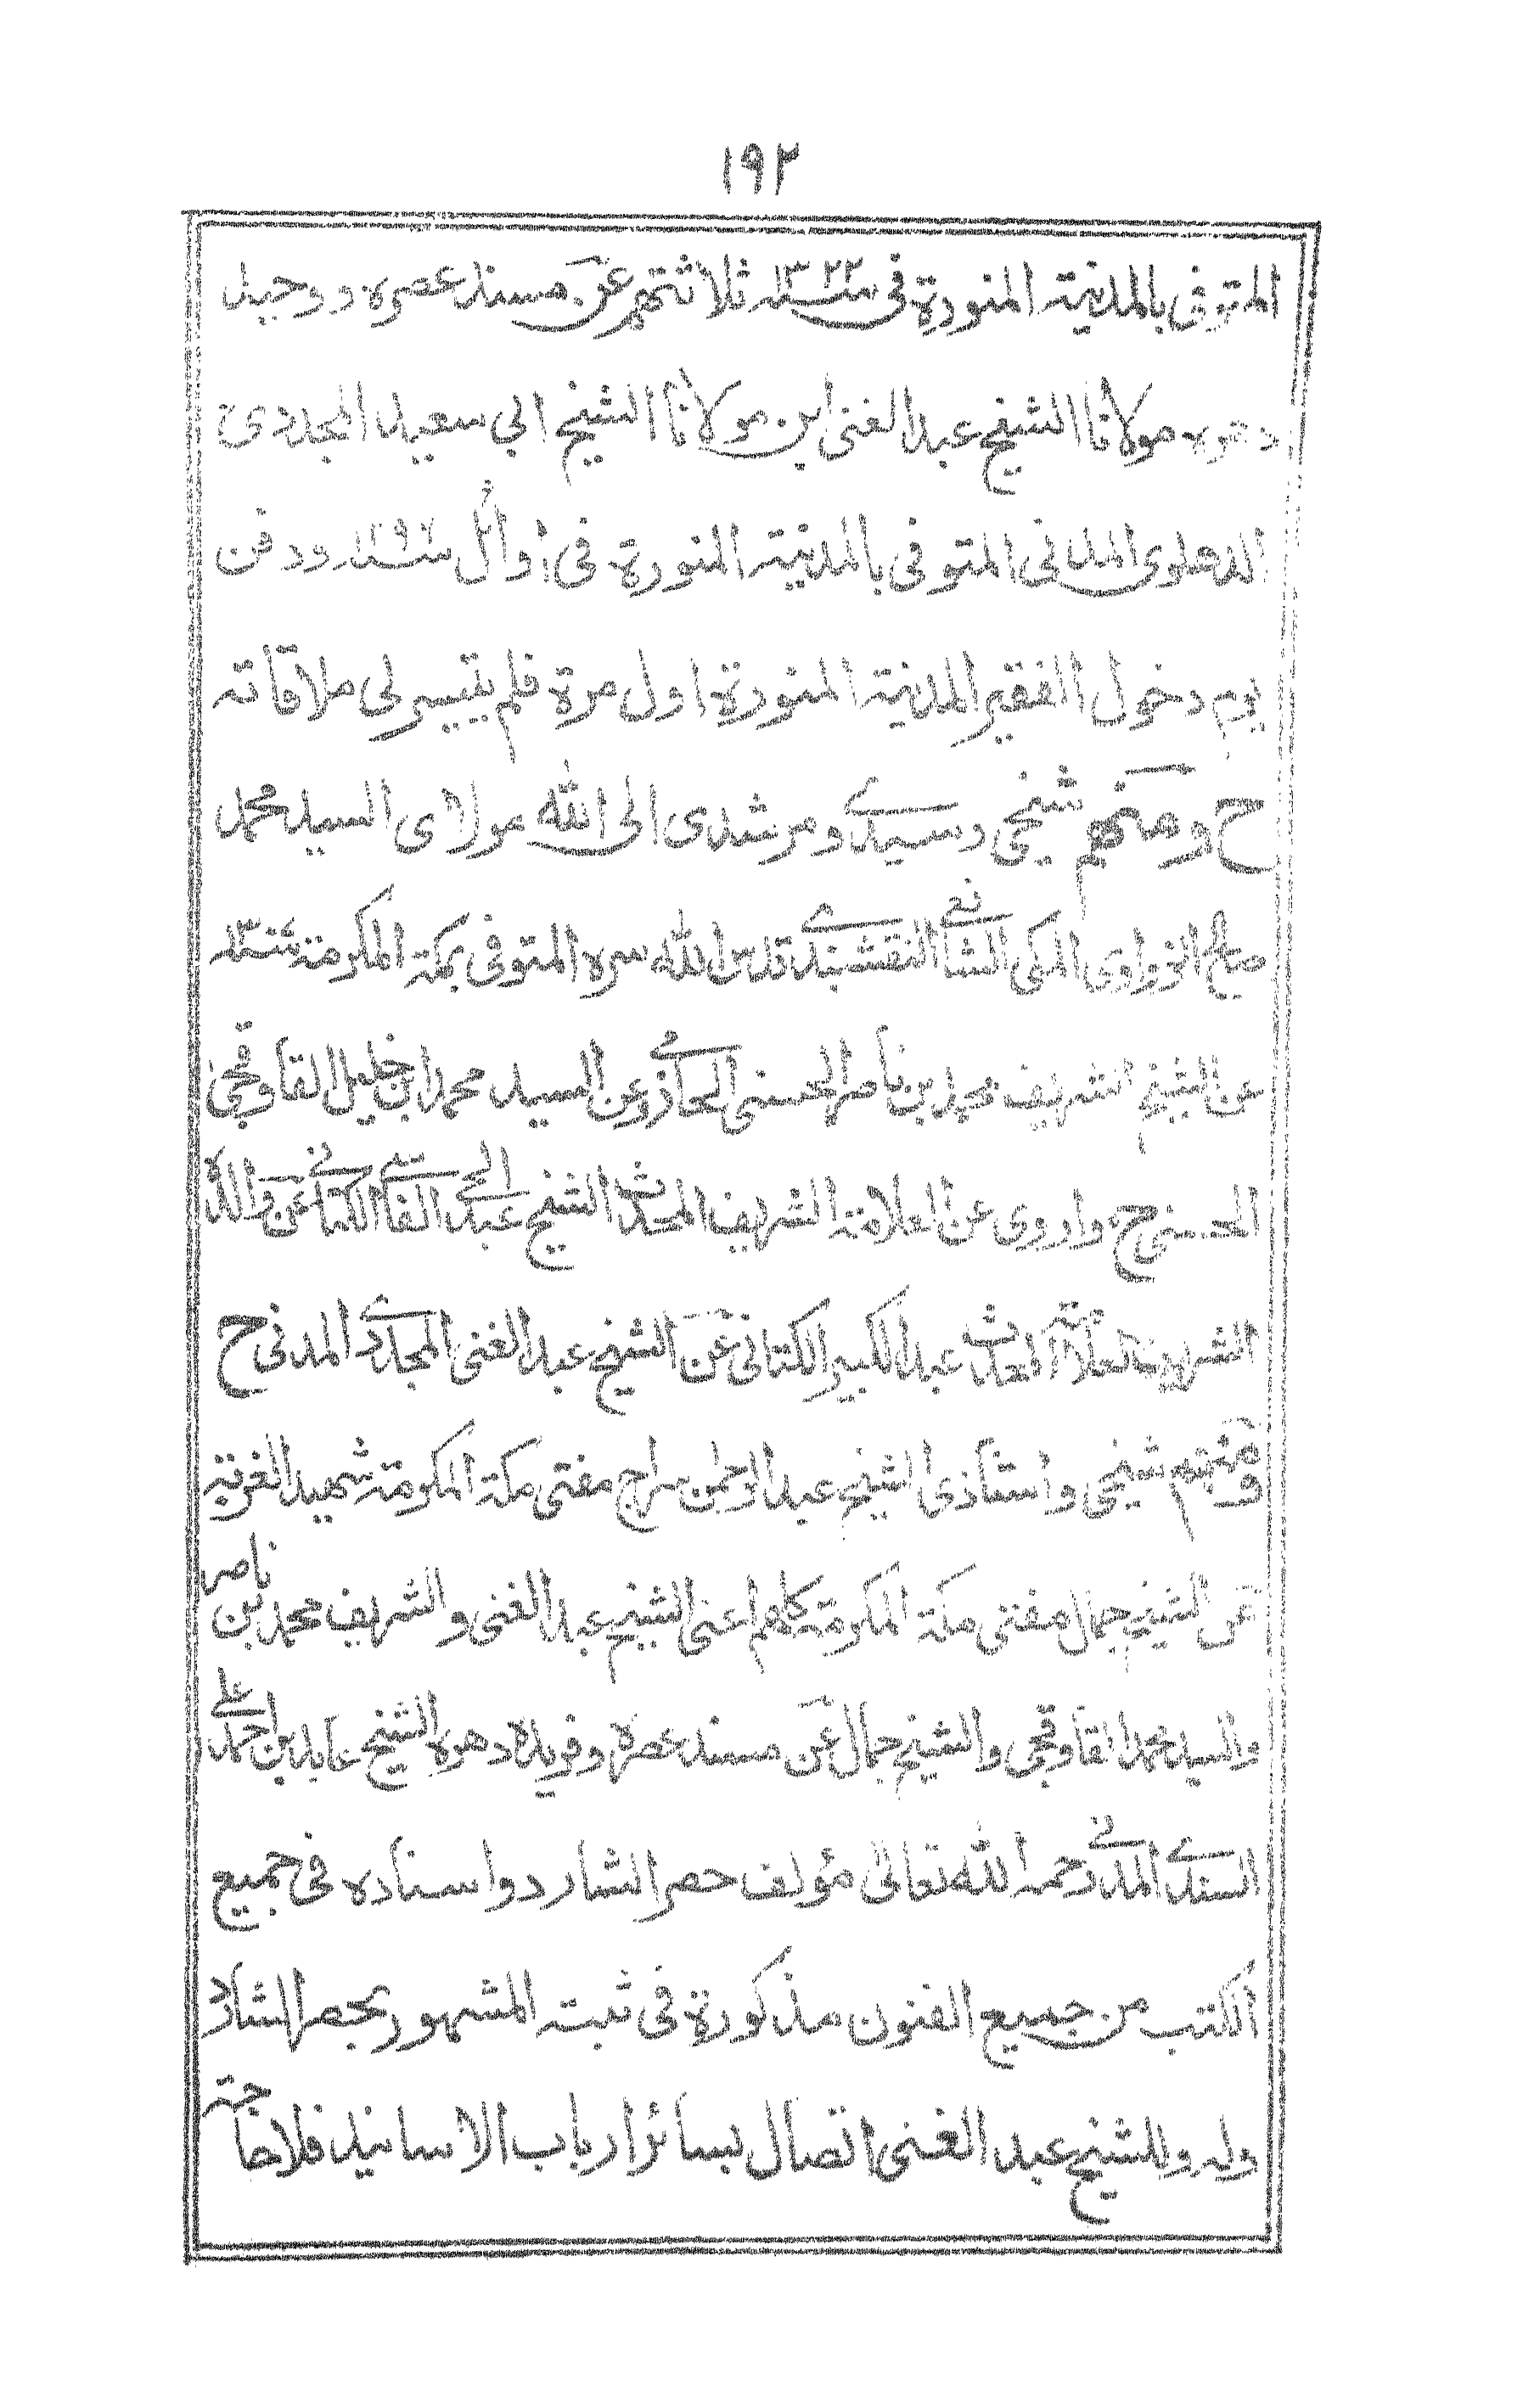 ١٩٢
المتوفى بالمدينة المنورة فى سنة ١٣٢٢ ثلاثتهم عن مسند عصره ووحيد
دهره مولانا الشيخ عبد الغنى ابن مولانا الشيخ ابى سعيد المجددى
الدهلوى المدنى المتوفى بالمدينة المنورة فى اوائل سنة ودفن
يوم دخول الفقير المدينة المنورة اول مرة فلم يتيسر لى ملاقاته
ح ومنهم شيخى وسيدى ومرشدى الى الله مولاى السيد محمد
صالح الزواوى المكى الشافعى النقشبندى قدس الله سره المتوفى بمكة المكرمة
عن الشيخ الشريف محمد بن ناصر الحسنى الحازمى وعن السيد محمد ابن خليل القاوقجى
الحسنى ح واروى عن العلامة الشريف المحدث الشيخ عبد الحى الفاسى الكتانى عن والده
الشريف العلامة المحدث عبد الكبير الكتانى عن الشيخ عبد الغنى المجددى المدنى ح
ومنهم شيخى واستاذى الشيخ عبد الرحمن سراج مفتى مكة المكرمة شهيد الغربة
عن الشيخ جمال مفتى مكة المكرمة كلهم اعنى الشيخ عبد الغنى والشريف محمد بن ناصر
والسيد محمد القاوقجى والشيخ جمال عن مسند عصره وفريد دهره الشيخ عابد بن احمد على
السندى المدنى رحمه الله تعالى مؤلف حصر الشارد واسناده فى جميع
الكتب من جميع الفنون مذكورة فى ثبته المشهور بحصر الشارد
وله وللشيخ عبد الغنى اتصال بسائر ارباب الاسانيد فلا حاجة